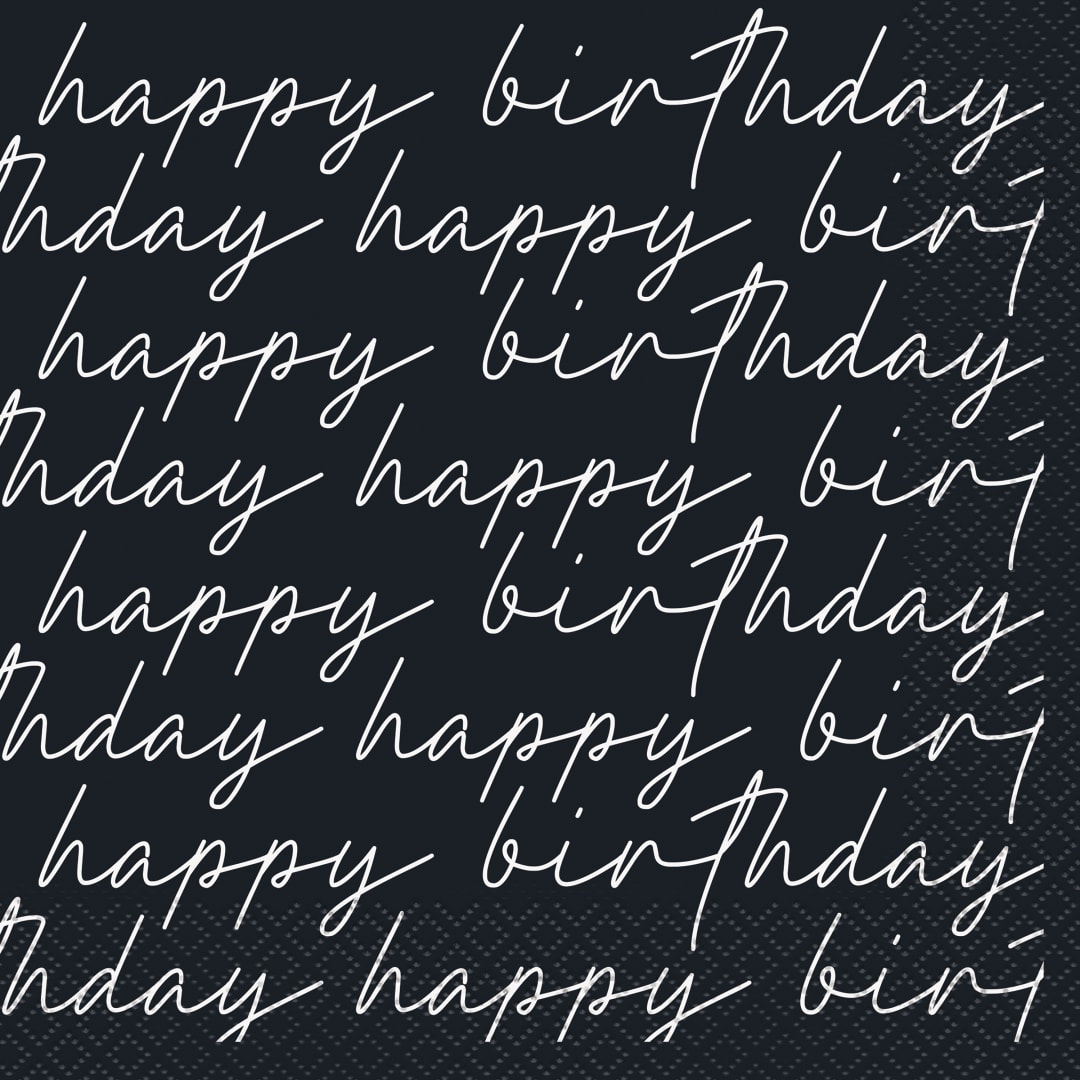 happy birthday
thday happy birt
happy birthday
thday happy birt
happy birthday
thday happy birt
happy birthday
thday happy birt